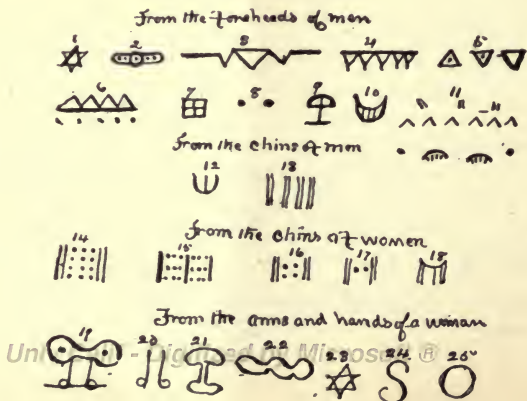 From the foreheads of men
1 2 3 4 5
6 7 8 9 10 11
From the chins of men
12 13
From the chins of women
14 15 16 17 18
From the arms and hands of a woman
19 20 21 22 23 24 25
Digitized by Microsoft ®